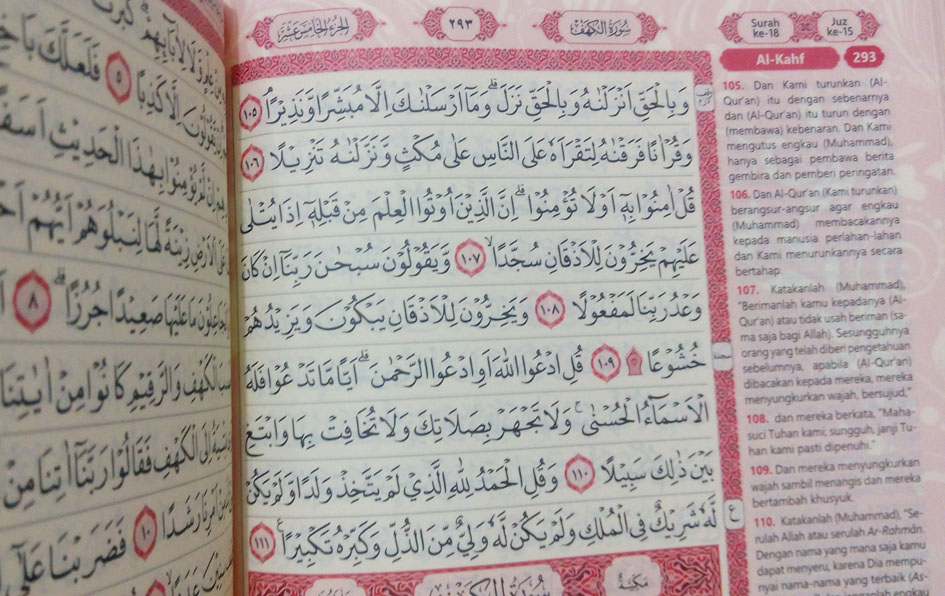 الجزء الخامس عشر
٢٩٣
سورة الكهف
Surah ke-18
Juz ke-15
Al-Kahf
293
وَبِالْحَقِّ اَنْزَلْنٰهُ وَبِالْحَقِّ نَزَلَۗ وَمَآ اَرْسَلْنٰكَ اِلَّا مُبَشِّرًا وَّنَذِيْرًاۘ ١٠٥
وَقُرْاٰنًا فَرَقْنٰهُ لِتَقْرَاَهٗ عَلَى النَّاسِ عَلٰى مُكْثٍ وَّنَزَّلْنٰهُ تَنْزِيْلًا ١٠٦
قُلْ اٰمِنُوْا بِهٖٓ اَوْ لَا تُؤْمِنُوْاۗ اِنَّ الَّذِيْنَ اُوْتُوا الْعِلْمَ مِنْ قَبْلِهٖٓ اِذَا يُتْلٰى
عَلَيْهِمْ يَخِرُّوْنَ لِلْاَذْقَانِ سُجَّدًاۙ ١٠٧ وَّيَقُوْلُوْنَ سُبْحٰنَ رَبِّنَآ اِنْ كَانَ
وَعْدُ رَبِّنَا لَمَفْعُوْلًا ١٠٨ وَيَخِرُّوْنَ لِلْاَذْقَانِ يَبْكُوْنَ وَيَزِيْدُهُمْ
خُشُوْعًا ۩ ١٠٩ قُلِ ادْعُوا اللّٰهَ اَوِ ادْعُوا الرَّحْمٰنَۗ اَيًّا مَّا تَدْعُوْا فَلَهُ
الْاَسْمَاۤءُ الْحُسْنٰىۚ وَلَا تَجْهَرْ بِصَلَاتِكَ وَلَا تُخَافِتْ بِهَا وَابْتَغِ
بَيْنَ ذٰلِكَ سَبِيْلًا ١١٠ وَقُلِ الْحَمْدُ لِلّٰهِ الَّذِيْ لَمْ يَتَّخِذْ وَلَدًا وَّلَمْ يَكُنْ
لَّهٗ شَرِيْكٌ فِى الْمُلْكِ وَلَمْ يَكُنْ لَّهٗ وَلِيٌّ مِّنَ الذُّلِّ وَكَبِّرْهُ تَكْبِيْرًاࣖ ١١١
سجدة
ع
مكية
105. Dan Kami turunkan (Al-
Qur'an) itu dengan sebenarnya
dan (Al-Qur'an) itu turun dengan
(membawa) kebenaran. Dan Kami
mengutus engkau (Muhammad),
hanya sebagai pembawa berita
gembira dan pemberi peringatan.
106. Dan Al-Qur'an (Kami turunkan)
berangsur-angsur agar engkau
(Muhammad) membacakannya
kepada manusia perlahan-lahan
dan Kami menurunkannya secara
bertahap.
107. Katakanlah (Muhammad),
"Berimanlah kamu kepadanya (Al-
Qur'an) atau tidak usah beriman (sa-
ma saja bagi Allah). Sesungguhnya
orang yang telah diberi pengetahuan
sebelumnya, apabila (Al-Qur'an)
dibacakan kepada mereka, mereka
menyungkurkan wajah, bersujud,"
108. dan mereka berkata, "Maha-
suci Tuhan kami; sungguh, janji Tu-
han kami pasti dipenuhi."
109. Dan mereka menyungkurkan
wajah sambil menangis dan mereka
bertambah khusyuk.
110. Katakanlah (Muhammad), "Se-
rulah Allah atau serulah Ar-Rahmān.
Dengan nama yang mana saja kamu
dapat menyeru, karena Dia mempu-
nyai nama-nama yang terbaik (As-
فَلَعَلَّكَ بَاخِعٌ
اِلَّا كَذِبًا ٥
يُؤْمِنُوْا بِهٰذَا الْحَدِيْثِ اَسَفًا
الْاَرْضِ زِيْنَةً لَّهَا لِنَبْلُوَهُمْ اَيُّهُمْ
مَا عَلَيْهَا صَعِيْدًا جُرُزًاۗ ٨
الْكَهْفِ وَالرَّقِيْمِ كَانُوْا مِنْ اٰيٰتِنَا
اِلَى الْكَهْفِ فَقَالُوْا رَبَّنَآ اٰتِنَا مِنْ
اَمْرِنَا رَشَدًا ١٠ فَضَرَبْنَا عَلٰٓى